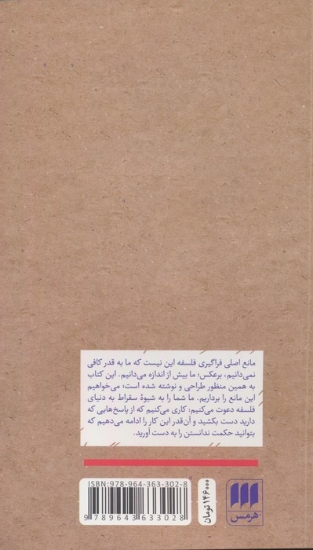 مانع اصلی فراگیری فلسفه این نیست که ما به قدر کافی
نمی‌دانیم، برعکس؛ ما بیش از اندازه می‌دانیم. این کتاب
به همین منظور طراحی و نوشته شده است؛ می‌خواهیم
این مانع را برداریم. ما شما را به شیوهٔ سقراط به دنیای
فلسفه دعوت می‌کنیم؛ کاری می‌کنیم که از پاسخ‌هایی که
دارید دست بکشید و آن‌قدر این کار را ادامه می‌دهیم که
بتوانید حکمت ندانستن را به دست آورید.
ISBN: 978-964-363-302-8
9 789643 633028
۱۴۶۰۰۰ تومان
هرمس